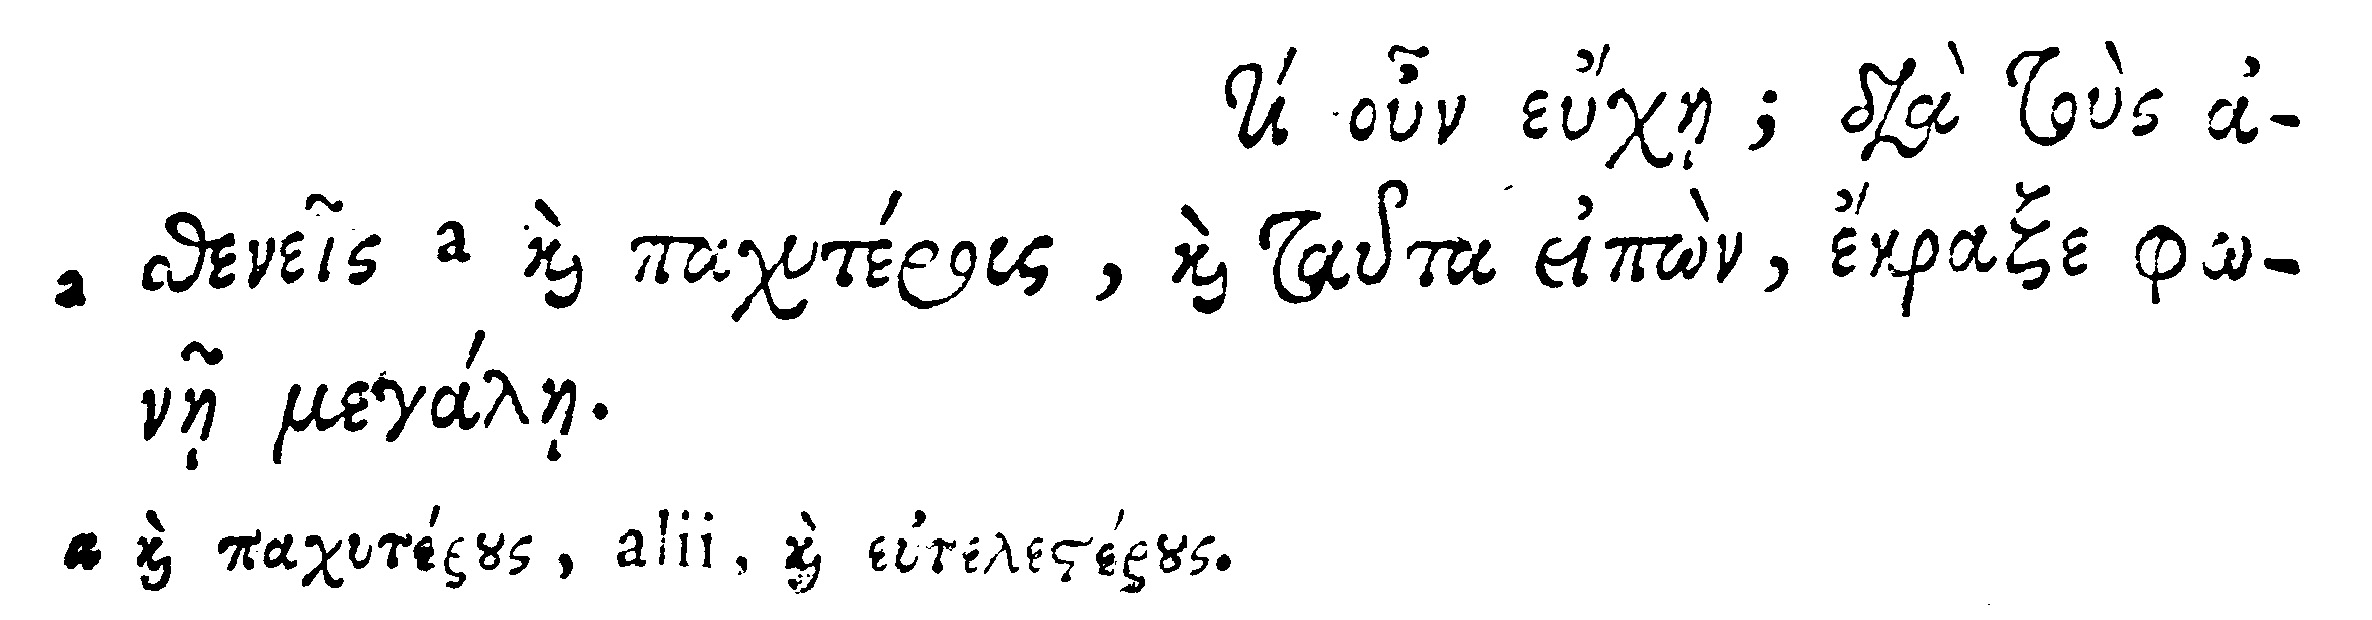 Τί οὖν εὔχῃ; διὰ τοὺς ἀ-
a σθενεῖς a καὶ παχυτέρους, καὶ ταῦτα εἰπὼν, ἔκραξε φω-
νῇ μεγάλῃ.
a καὶ παχυτέρους, alii, καὶ εὐτελεστέρους.